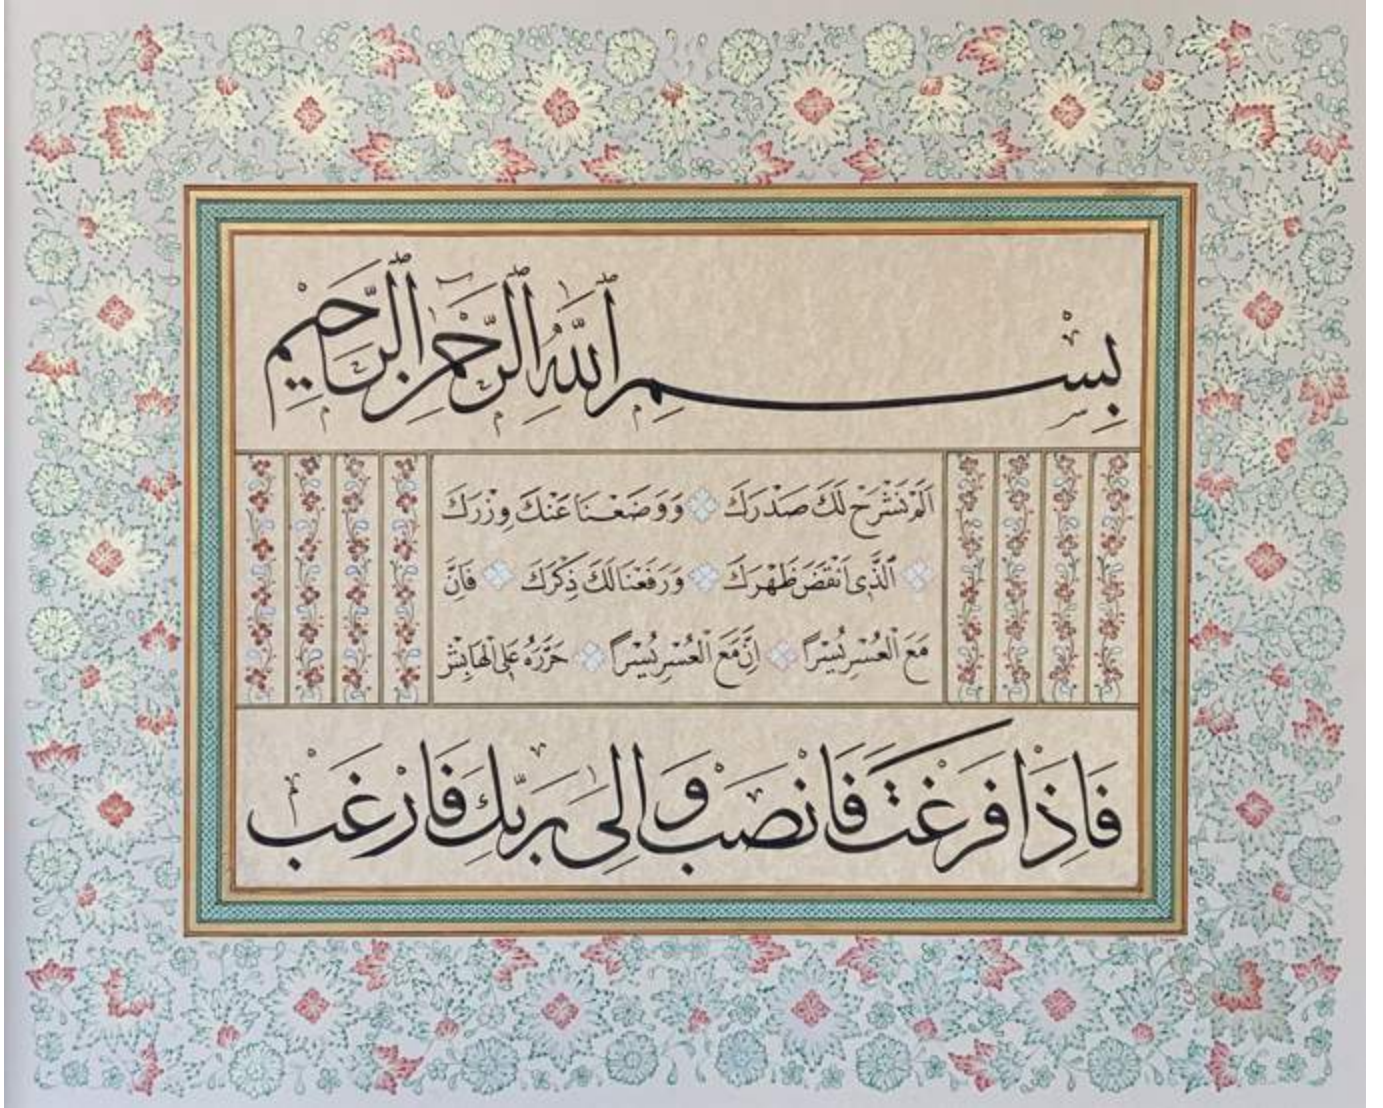 بِسْمِ ٱللّٰهِ ٱلرَّحْمٰنِ ٱلرَّحِيمِ
اَلَمْ نَشْرَحْ لَكَ صَدْرَكَ وَوَضَعْنَا عَنْكَ وِزْرَكَ
اَلَّذٖى اَنْقَضَ ظَهْرَكَ وَرَفَعْنَا لَكَ ذِكْرَكَ فَاِنَّ
مَعَ الْعُسْرِ يُسْرًا اِنَّ مَعَ الْعُسْرِ يُسْرًا حَرَّرَهُ عَلِى
فَاِذَا فَرَغْتَ فَانْصَبْ وَاِلٰى رَبِّكَ فَارْغَبْ